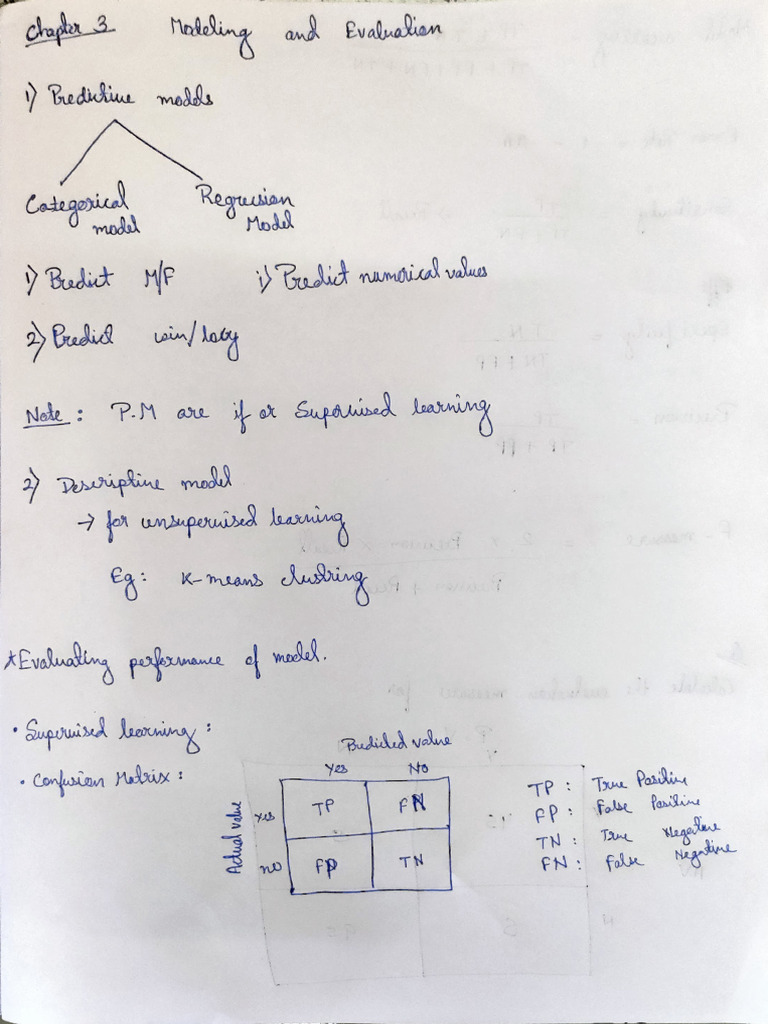 Chapter 3 Modeling and Evaluation
1) Predictive models
Categorical model
Regression Model
1) Predict M/F
i) Predict numerical values
2) Predict win/
Note : P.M are if or Supervised learning
2) Descriptive model
→ for unsupervised learning
Eg: K-means clustring
* Evaluating performance of model.
• Supervised learning :
• Confusion Matrix :
Predicted value
Yes No
Actual value
Yes TP FN
no FP TN
TP : True Positive
FP : False Positive
TN : True Negative
FN : False Negative